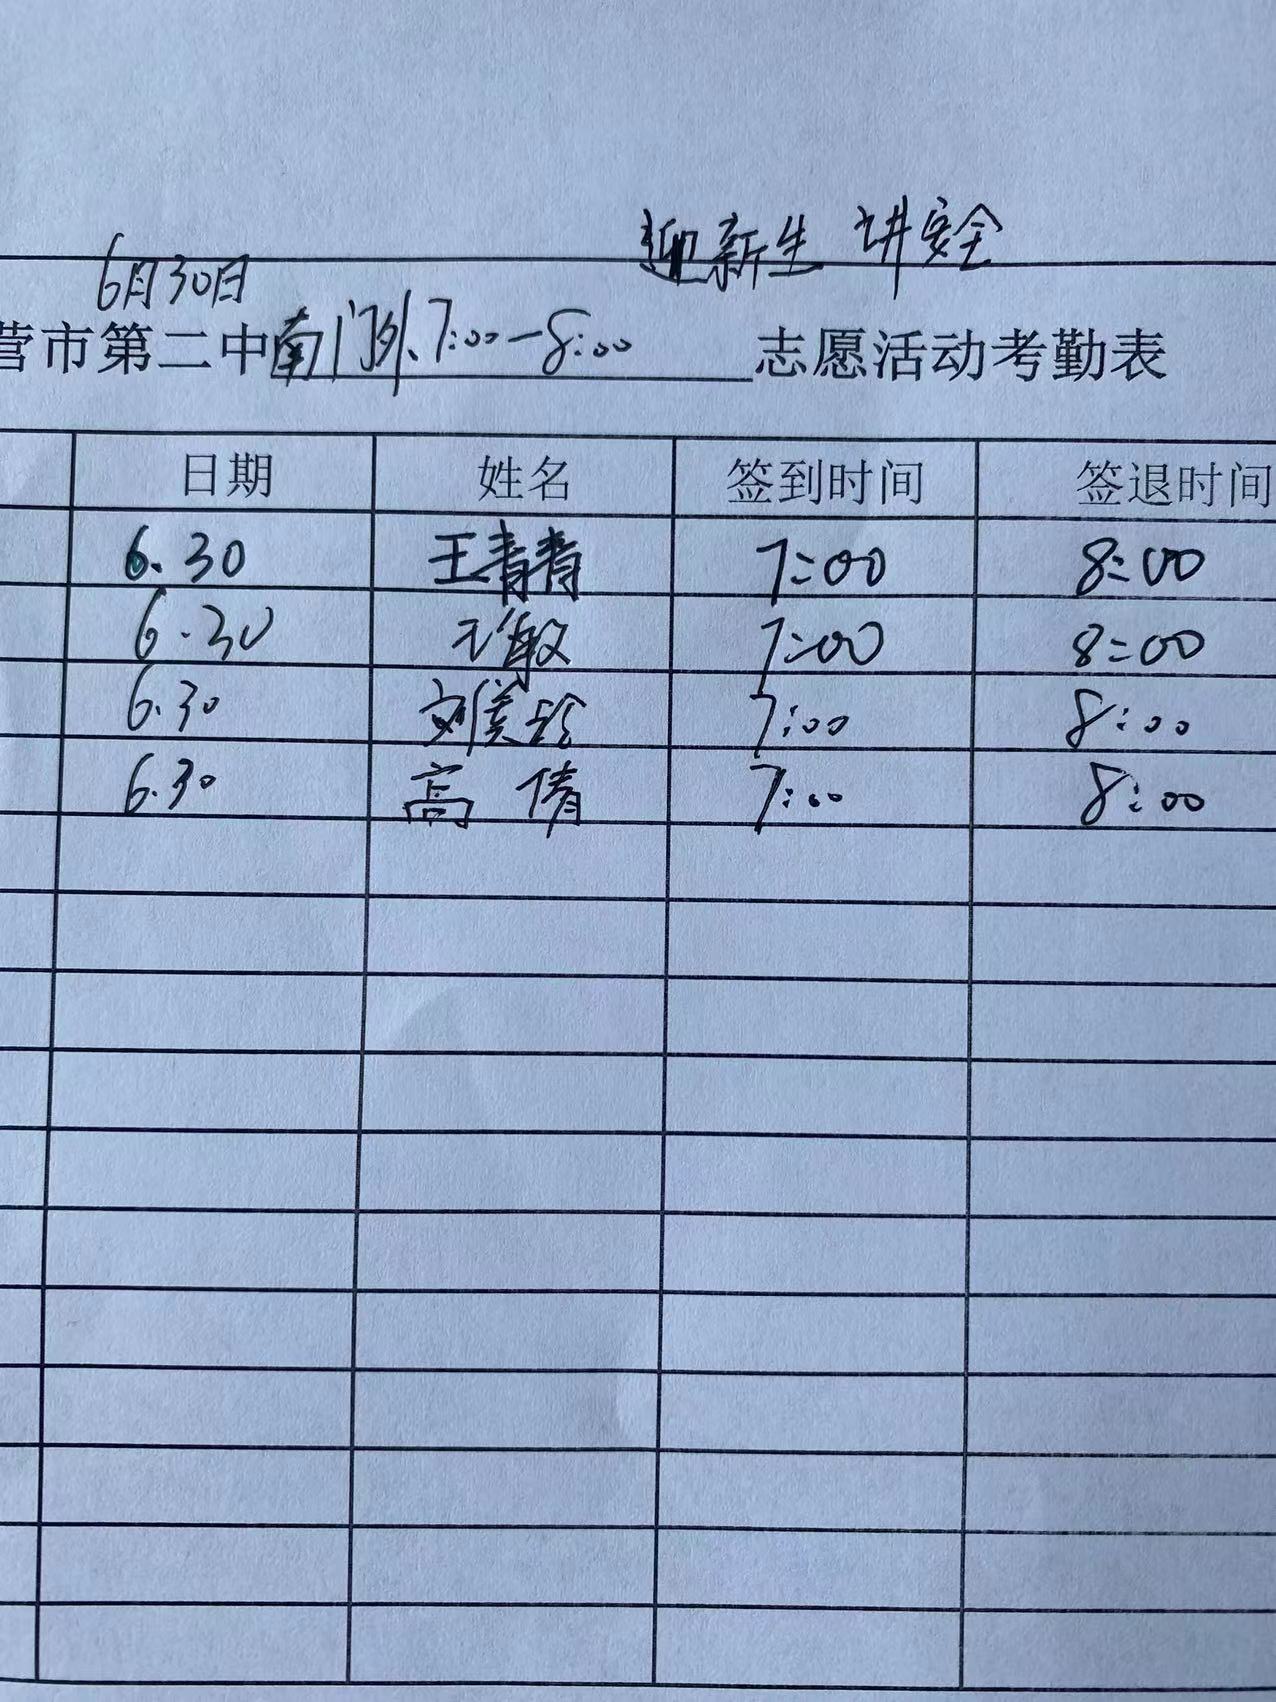 迎新生 讲安全
6月30日
营市第二中南门外、7:00-8:00 志愿活动考勤表
日期 姓名 签到时间 签退时间
6.30 王青青 7:00 8:00
6.30 敏 7:00 8:00
6.30 刘美玲 7:00 8:00
6.30 高 倩 7:00 8:00